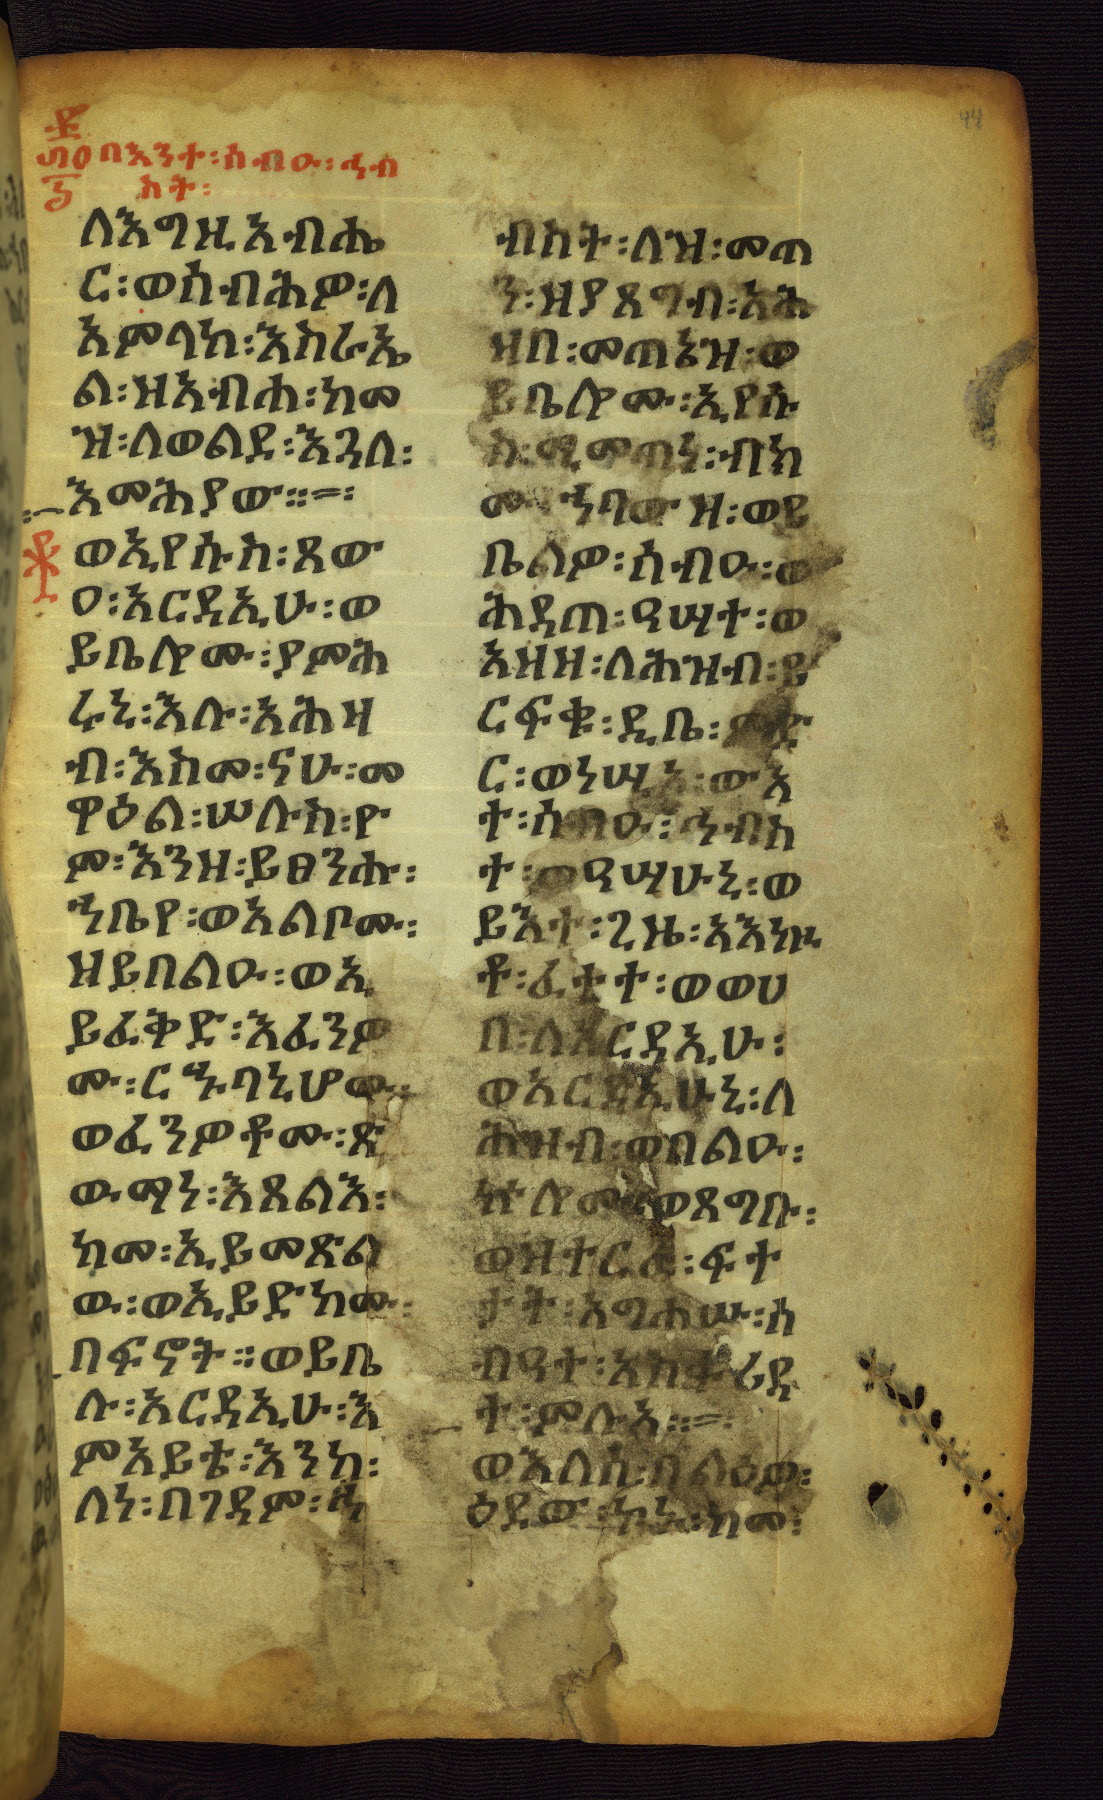 በእንተ፡ሰብዑ፡ኅብ
አት፡
ለእግዚአብሔ
ር፡ወሰብሕዎ፡ለ
አምላከ፡እስራኤ
ል፡ዝአብሐ፡ከመ
ዝ፡ለወልደ፡እጓለ፡
እመሕያው።=፡
ወኢየሱስ፡ጸው
ዐ፡አርዳኢሁ፡ወ
ይቤሎሙ፡ያምሕ
ሩኒ፡እሉ፡አሕዛ
ብ፡እስመ፡ናሁ፡መ
ዋዕል፡ሠሉስ፡ዮ
ም፡እንዘ፡ይፀንሑ፡
ኀቤየ፡ወአልቦሙ፡
ዘይበልዑ፡ወኢ
ይፈቅድ፡እፈንዎ
ሙ፡ርኁባኒሆሙ፡
ወፈንዎቶሙ፡ጽ
ውማነ፡እጸልእ፡
ከመ፡ኢይመጽል
ዉ፡ወኢይድክሙ፡
በፍኖት።ወይቤ
ሉ፡አርዳኢሁ፡እ
ምአይቴ፡እንከ፡
ለነ፡በገዳም፡ኅ
ብስት፡ለዝ፡መጠ
ን፡ዘያጸግብ፡አሕ
ዛበ፡መጠኔዝ፡ወ
ይቤሎሙ፡ኢየሱ
ስ፡ሚመጠነ፡ብክ
ሙ፡ኅባውዝ፡ወይ
ቤልዎ፡ሰብዑ፡ወ
ሕዳጠ፡ዓሣተ፡ወ
አዘዘ፡ለሕዝብ፡ይ
ርፍቁ፡ዲቤ፡ምድ
ር፡ወነሢኦ፡ውእ
ተ፡ሰብዑ፡ኅብስ
ተ፡ወዓሣሁኒ፡ወ
ይእተ፡ጊዜ፡አእኰ
ቶ፡ፈተተ፡ወወሀ
በ፡ለአርዳኢሁ፡
ወአርዳኢሁኒ፡ለ
ሕዝብ፡ወበልዑ፡
ኵሎሙ፡ወጸግቡ፡
ወዝተርፈ፡ፍተ
ታት፡አግሐሡ፡ሰ
ብዓተ፡አስፈሬዳ
ተ፡ምሉአ።=፡
ወእለሰ፡በልዕዎ፡
ዕደው፡ከኑ፡ከመ፡